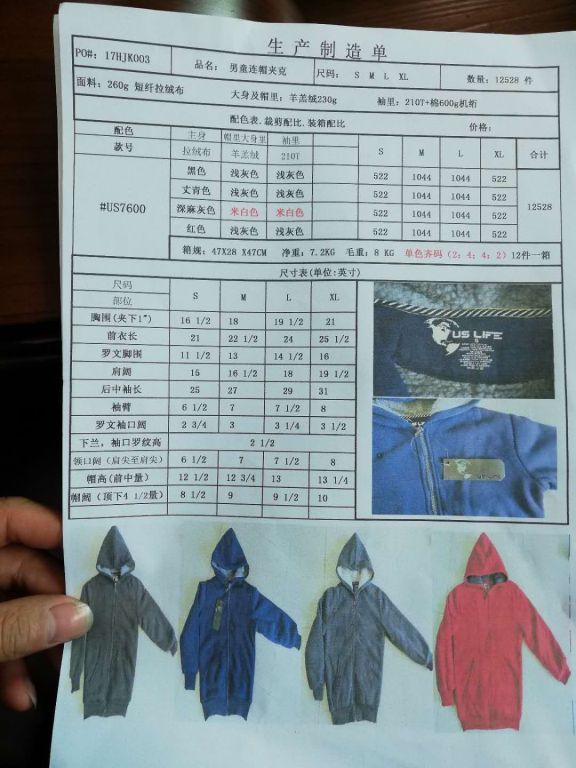 生产制造单
PO#: 17HJK003 品名: 男童连帽夹克 尺码: S M L XL 数量: 12528 件
面料: 260g 短纤拉绒布 大身及帽里: 羊羔绒230g 袖里: 210T+棉600g机绗
配色表.裁剪配比.装箱配比 价格:
配色 主身 帽里大身里 袖里 S M L XL 合计
款号 拉绒布 羊羔绒 210T
#US7600
黑色 浅灰色 浅灰色 522 1044 1044 522
丈青色 浅灰色 浅灰色 522 1044 1044 522
12528
深麻灰色 米白色 米白色 522 1044 1044 522
红色 浅灰色 浅灰色 522 1044 1044 522
箱规: 47X28 X47CM 净重: 7.2KG 毛重: 8 KG 单色齐码(2; 4; 4; 2) 12件一箱
尺寸表(单位:英寸)
尺码 S M L XL
部位
胸围(夹下1") 16 1/2 18 19 1/2 21
前衣长 21 22 1/2 24 25 1/2
罗文脚围 11 1/2 13 14 1/2 16
肩阔 15 16 1/2 18 19 1/2
后中袖长 25 27 29 31
袖臂 6 1/2 7 7 1/2 8
罗文袖口阔 2 3/4 3 3 1/4 3 1/2
下兰,袖口罗纹高 2 1/2
领口阔 (肩尖至肩尖) 6 1/2 7 7 1/2 8
帽高(前中量) 12 1/2 12 3/4 13 13 1/4
帽阔 (顶下4 1/2量) 8 1/2 9 9 1/2 10
US LIFE